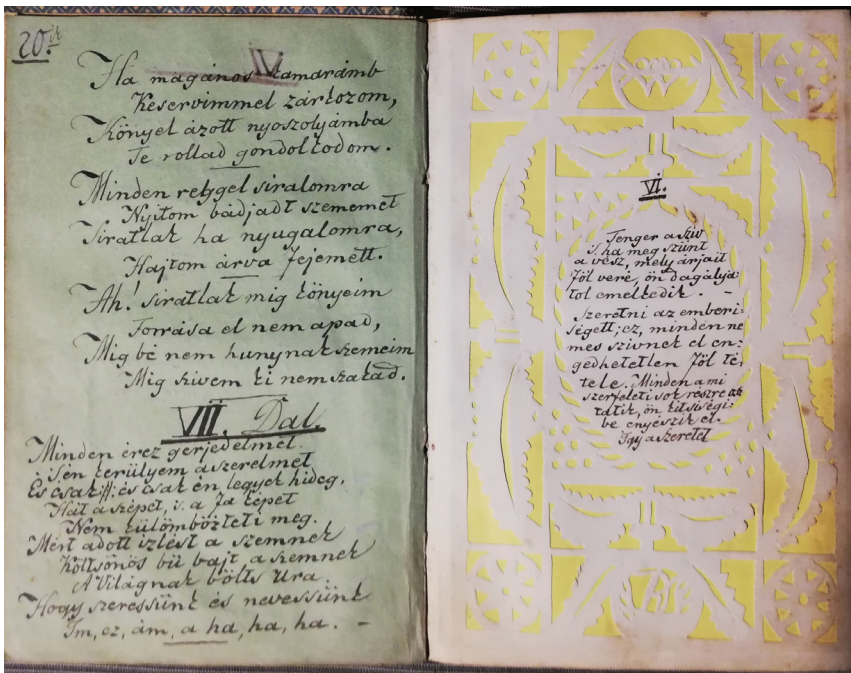 20.ik
IV
Ha magános kamarámb
Keservimmel zárkozom,
Könyel ázott nyoszolyámba
Te rollad gondolkodom.
Minden reggel siralomra
Nyitom bádjadt szememet
Siratlak ha nyugalomra,
Hajtom árva fejemett.
Ah! siratlak mig könyeim
Forrása el nem apad,
Mig bé nem hunynak szemeim
Mig szivem ki nem szakad.
VII. Dal.
Minden érez gerjedelmet
S én kerülyem a szerelmet
És csak én legyek hideg,
Hát a szépet, s. a Ja képet
Nem külömbözteti meg.
Mért adott izlést a szemnek
Költsönös bü bajt a szemnek
A Világnak bölts Ura
Hogy szeressünk és nevessünk
Im, ez, ám, a ha, ha, ha. –
VI.
Tenger a sziv
s. ha meg szünt
a vész, mely árjait
föl veré, ön dagálya:
tol emelkedik. –
Szeretni az emberi:
ségett; ez, minden ne
mes szivnek el en:
gedhetetlen föl té,
tele. Minden a mi
szerfeleti sok részre
tatik, ön kitsiségi:
be enyészik el.
Igy a szeretet